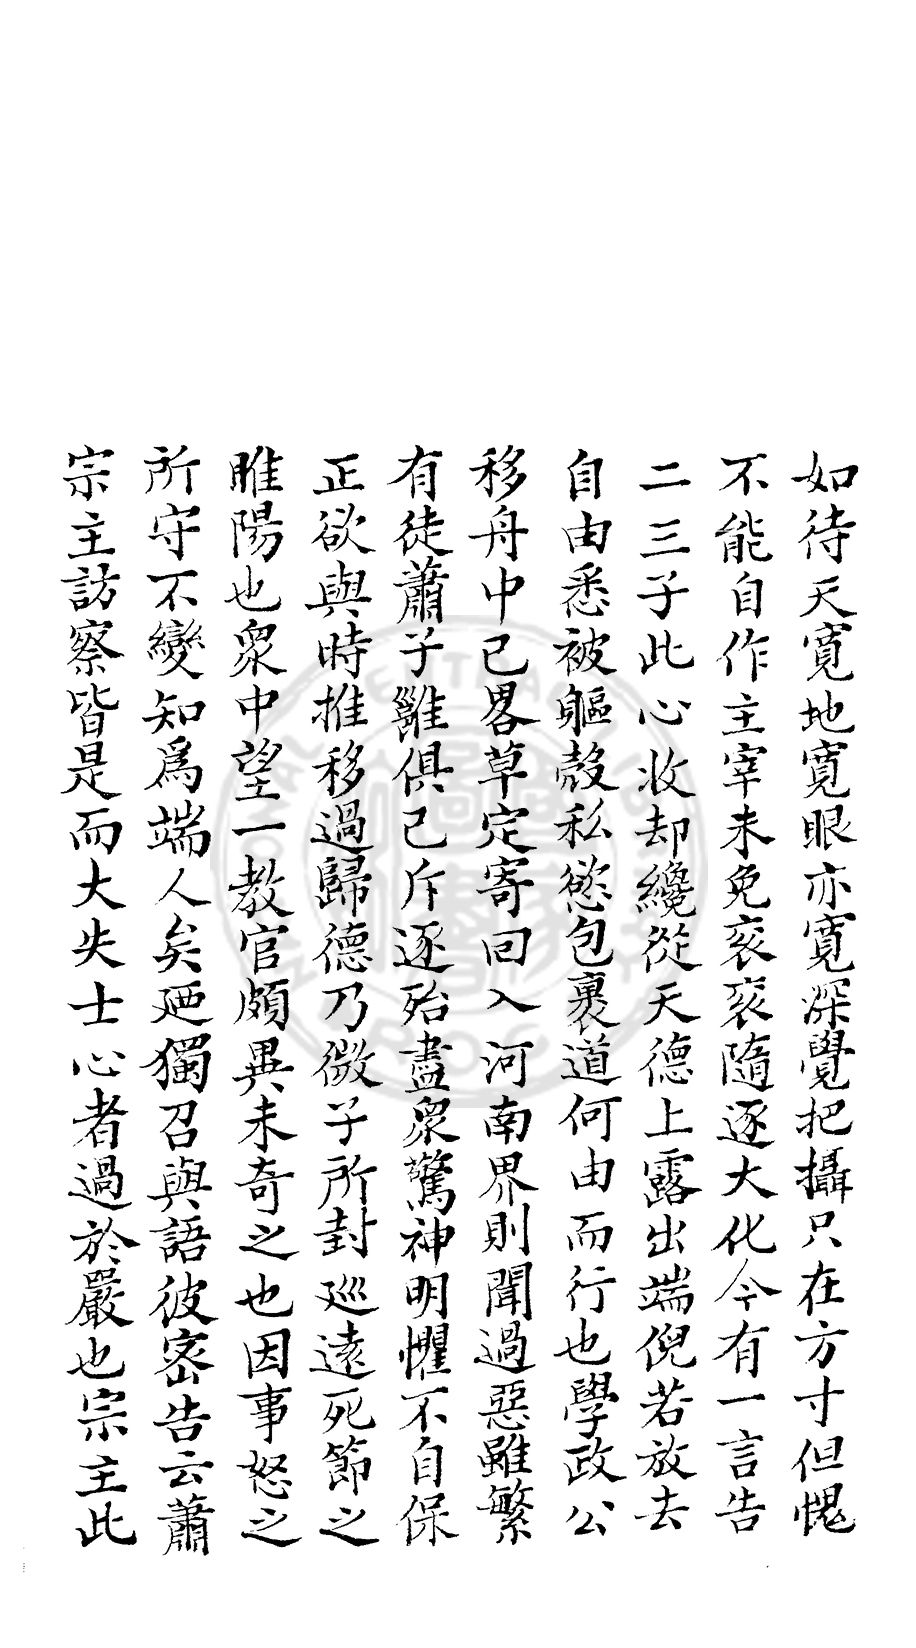 如待天寬地寬眼亦寬深覺把攝只在方寸但愧
不能自作主宰未免衮衮隨逐大化今有一言告
二三子此心收却纔從天德上露出端倪若放去
自由悉被軀殼私慾包裹道何由而行也學政公
移舟中已畧草定寄回入河南界則聞過惡雖繁
有徒蕭子雖俱已斥逐殆盡衆驚神明懼不自保
正欲與時推移過歸德乃微子所封巡遠死節之
睢陽也衆中望一教官頗異未奇之也因事怒之
所守不變知爲端人矣廼獨召與語彼密告云蕭
宗主訪察皆是而大失士心者過於嚴也宗主此